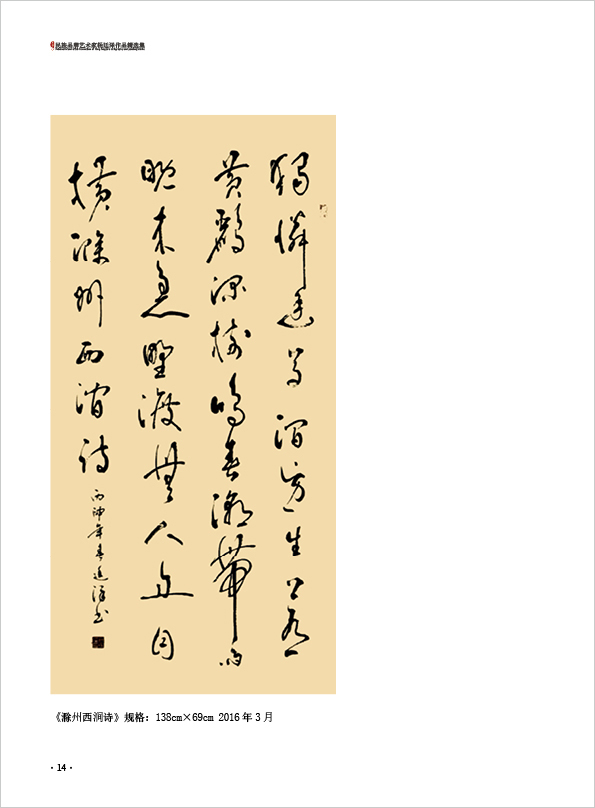 獨憐幽草澗邊生上有
黄鸝深樹鳴春潮帶雨
晚来急野渡無人舟自
横滁州西澗詩
丙申年春 书
《滁州西涧诗》规格：138cm×69cm 2016 年 3 月
· 14 ·